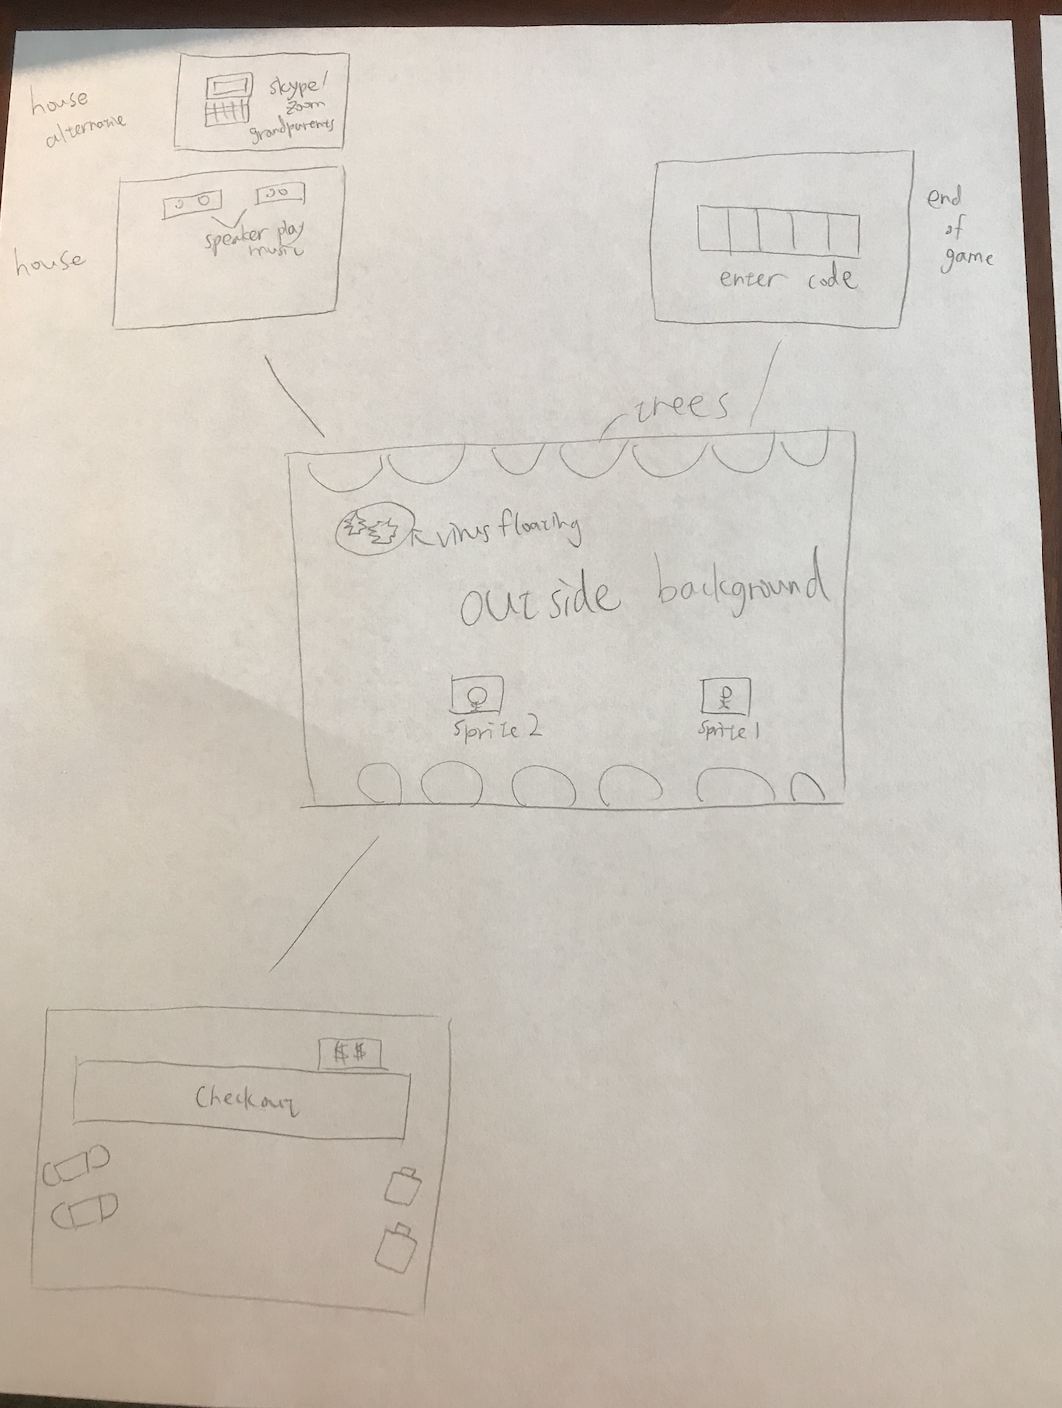 house
alternative
skype/
zoom
grandparents
house
speaker play
music
enter code
end
of
game
trees
virus floating
outside background
sprite 2
sprite 1
$$
Checkout